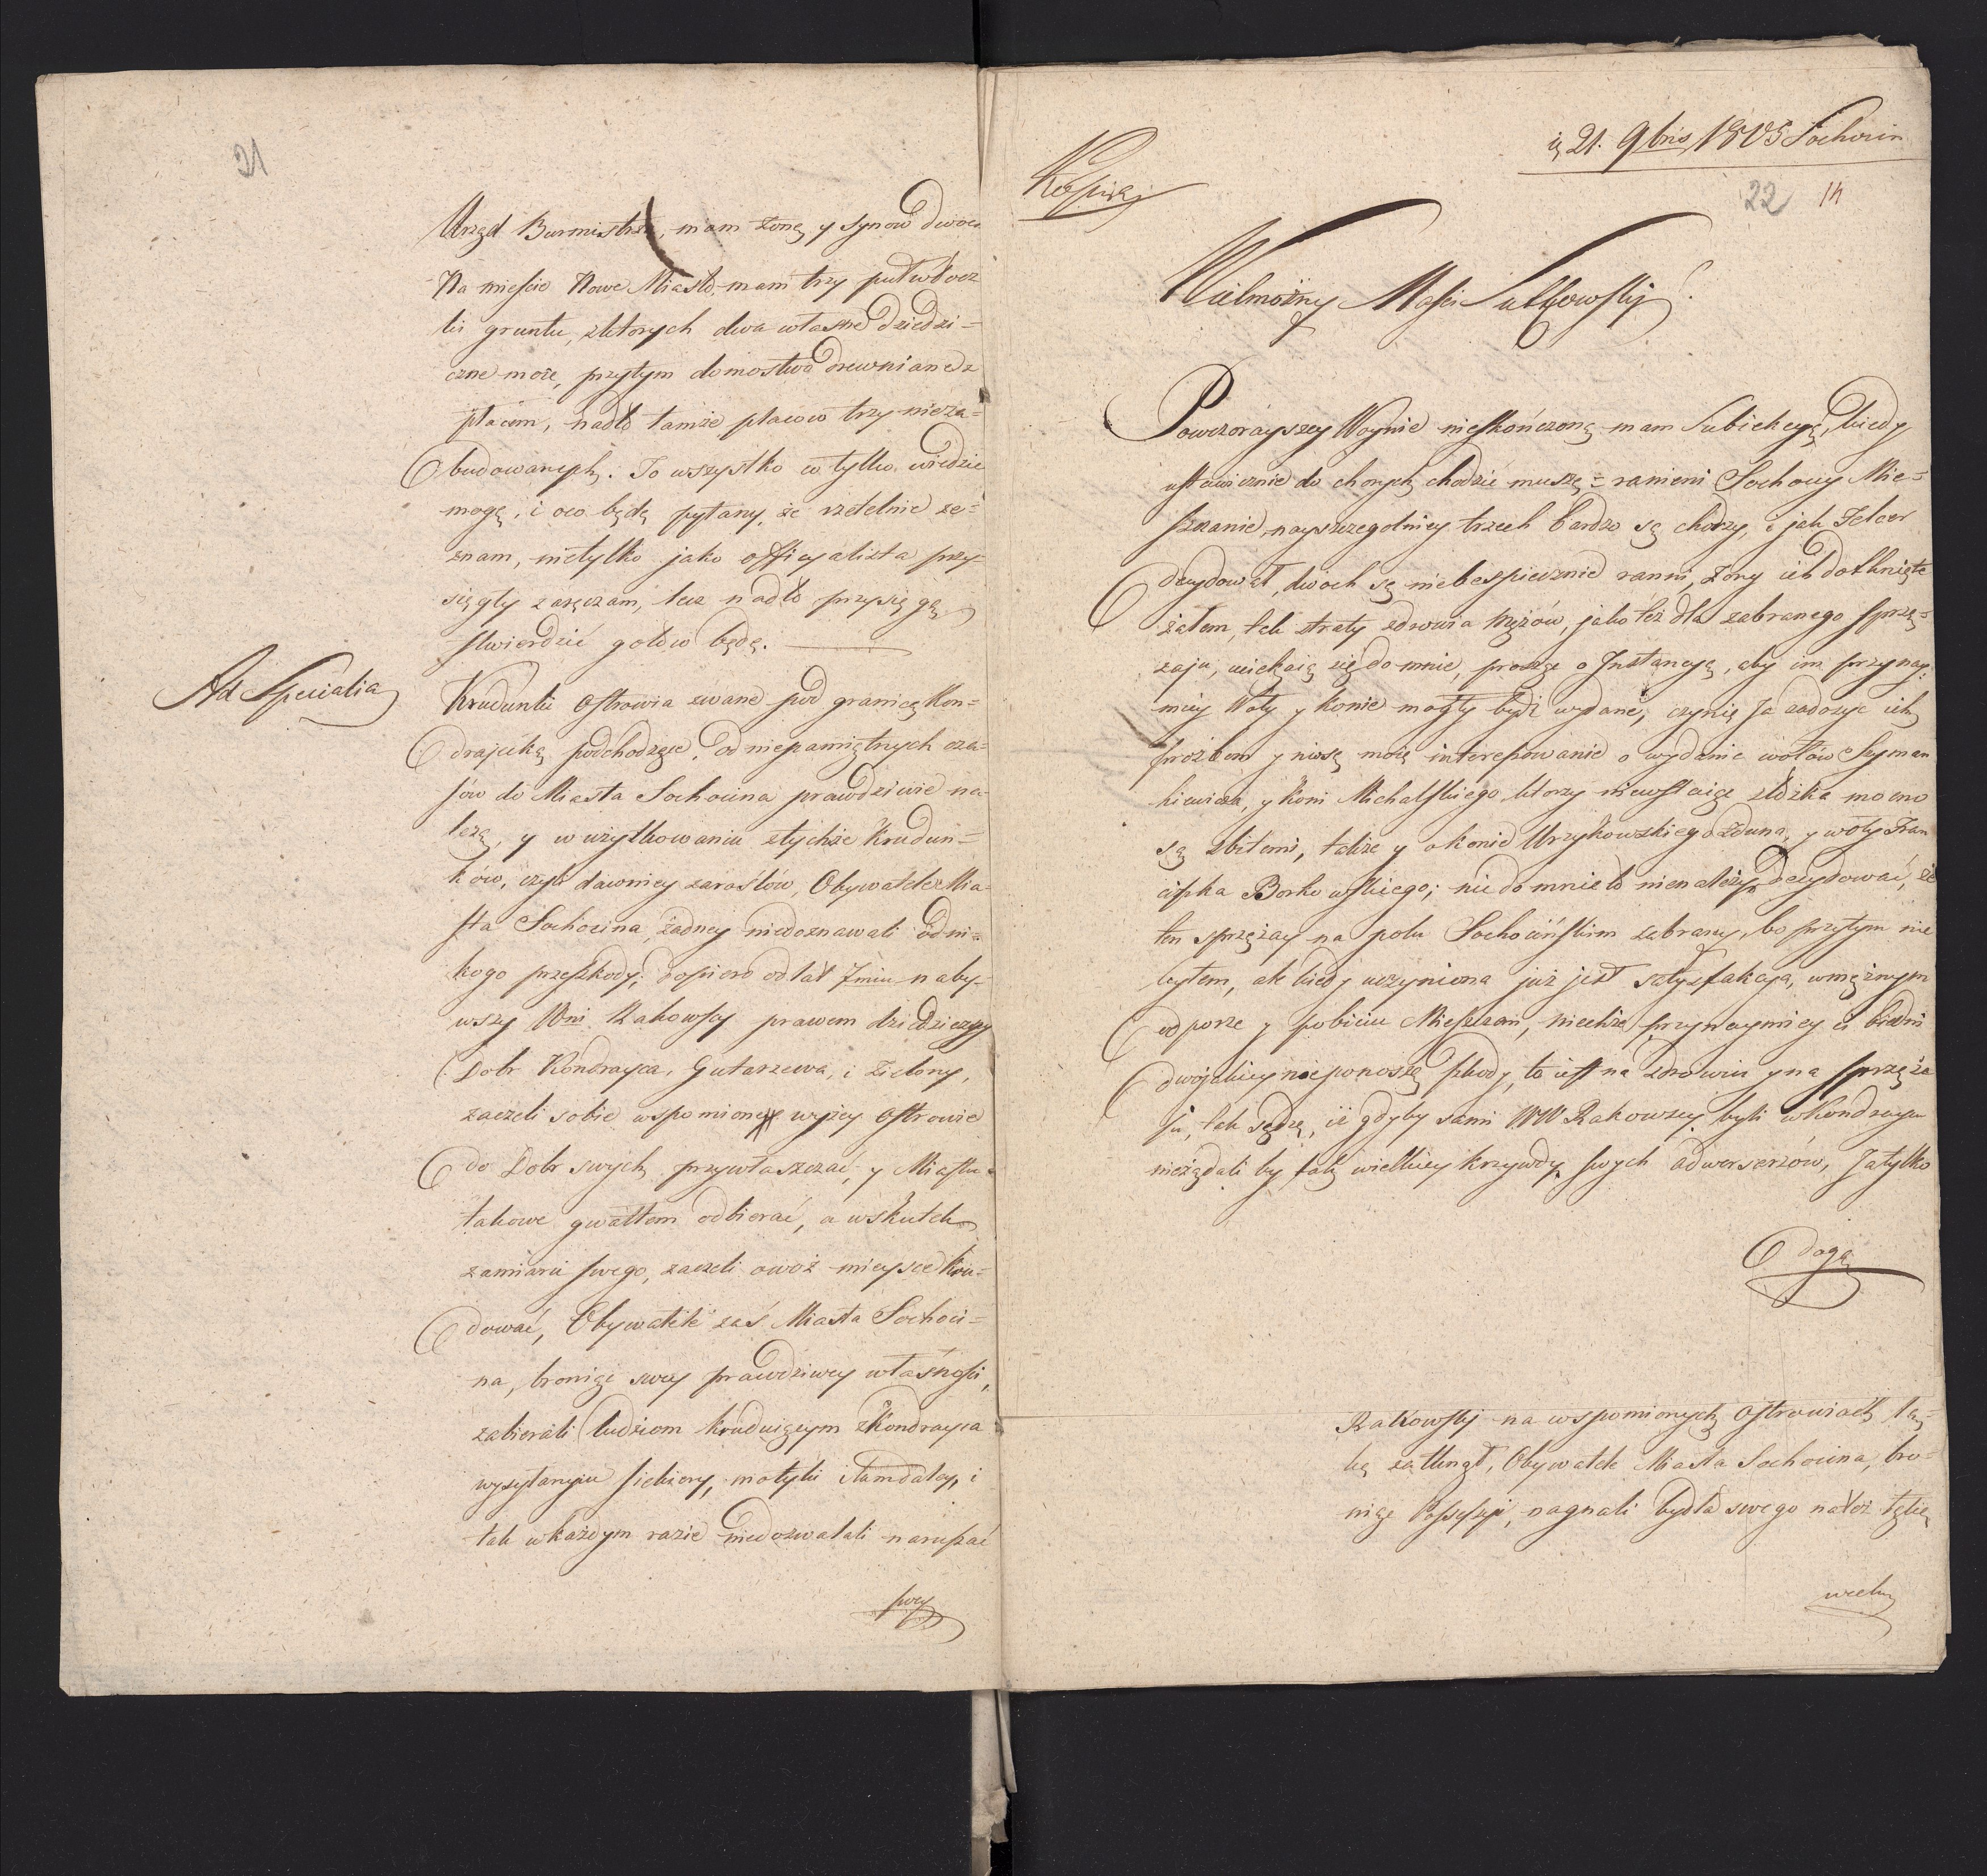 21
Urząd Burmistrza, mam żonę y synow dwoch
Na mieście Nowe Miasto, mam trzy pułwłocz
ki gruntu, z ktorych dwa własne dziedzi=
czne moie, przytym domostwo drewniane z
placem, nadto tamże placow trzy nieza=
budowanych. To wszystko co tylko wiedzie
mogę, i oco będę pytany, że rzetelnie ze=
znam, nietylko jako officyalista przy=
sięgły zaręczam, lecz nadto przysięgą
stwierdzić gotow będę.
Ad Specialia
Krudunki Ostrowia zwane pod granicę Kon=
drajecką podchodzące, od niepamiętnych cza=
sów do Miasta Sochocina prawdziwie na-
leżą, y w użytkowaniu z tychże Krudun=
kow, czyli dawniey zarosłów, Obywatele Mia=
sta Sochocina, żadney niedoznawali od ni=
kogo przeszkody; dopiero od lat 7miu naby-
wszy Wni Rakowscy prawem dziedzicznym
Dobr Kondrayca, Gutarzewa, i Zielony,
zaczeli sobie wspomione wyżey Ostrowie
do Dobr swych przywłaszczać, y Miastu
takowe gwałtem odbierać, a w skutek
zamiaru swego, zaczeli owoż mieysce kru=
dować, Obywatele zaś Miasta Sochoci=
na, broniąc swey prawdziwey własności,
zabierali ludziom kruduiącym z Kondrayca
wysyłanym siekiery, motyki i tamdaley, i
tak w każdym razie niedozwalali naruszać
swey
Kopia
d. 21. 9bris 1805 Sochocin
22 14
Wielmożny Mości Sulkowski
Powczorayszey Woynie nieskończoną mam Subiekcyą, kiedy
ustawicznie do chorych chodzić muszę = ranieni Sochoccy Mie=
szczanie, nayszczegolniey trzech bardzo są chorzy, i jak Felczer
decydował, dwoch są niebespiecznie ranni, żony ich dotknięte
żalem, tak straty zdrowia mężów, jako też dla zabranego sprzę=
żaju, uciekaią się do mnie, proszę o Instancyą, aby im przynay=
miey Woły y Konie mogły bydź wydane; czynię Ja zadosyć ich
prożbom y niosę moię interesowanie o wydanie wołów Szyman
kiewicza, y koni Michalskiego, ktorzy niewstaiąc z łóżka mocno
są zbitemi, także y o konie Urzykowskiego Zduna, y woły Fran
ciszka Borkowskiego; nie do mnie to nienależy decydować, że
ten sprzężay na polu Sochocińskim zabrany, bo przytym nie
byłem, ale kiedy uczyniona już jest satysfakcya, w mężnym
odporze y pobiciu Mieszczan, niechże przynaymiey ci biedni
dwojakiey nieponoszą szkody, to iest na zdrowiu y na sprzęża
ju, tak sądzę, iż gdyby sami WW Rakowscy byli w Kondraycu
nieżądali by tak wielkiey krzywdy swych adwersarzów, Ja tylko
dogą
Rakowski na wspomionych Ostrowiach tą=
kę zatknął, Obywatele Miasta Sochocina, bro=
niąc Possessyi, nagnali bydła swego na też tękę